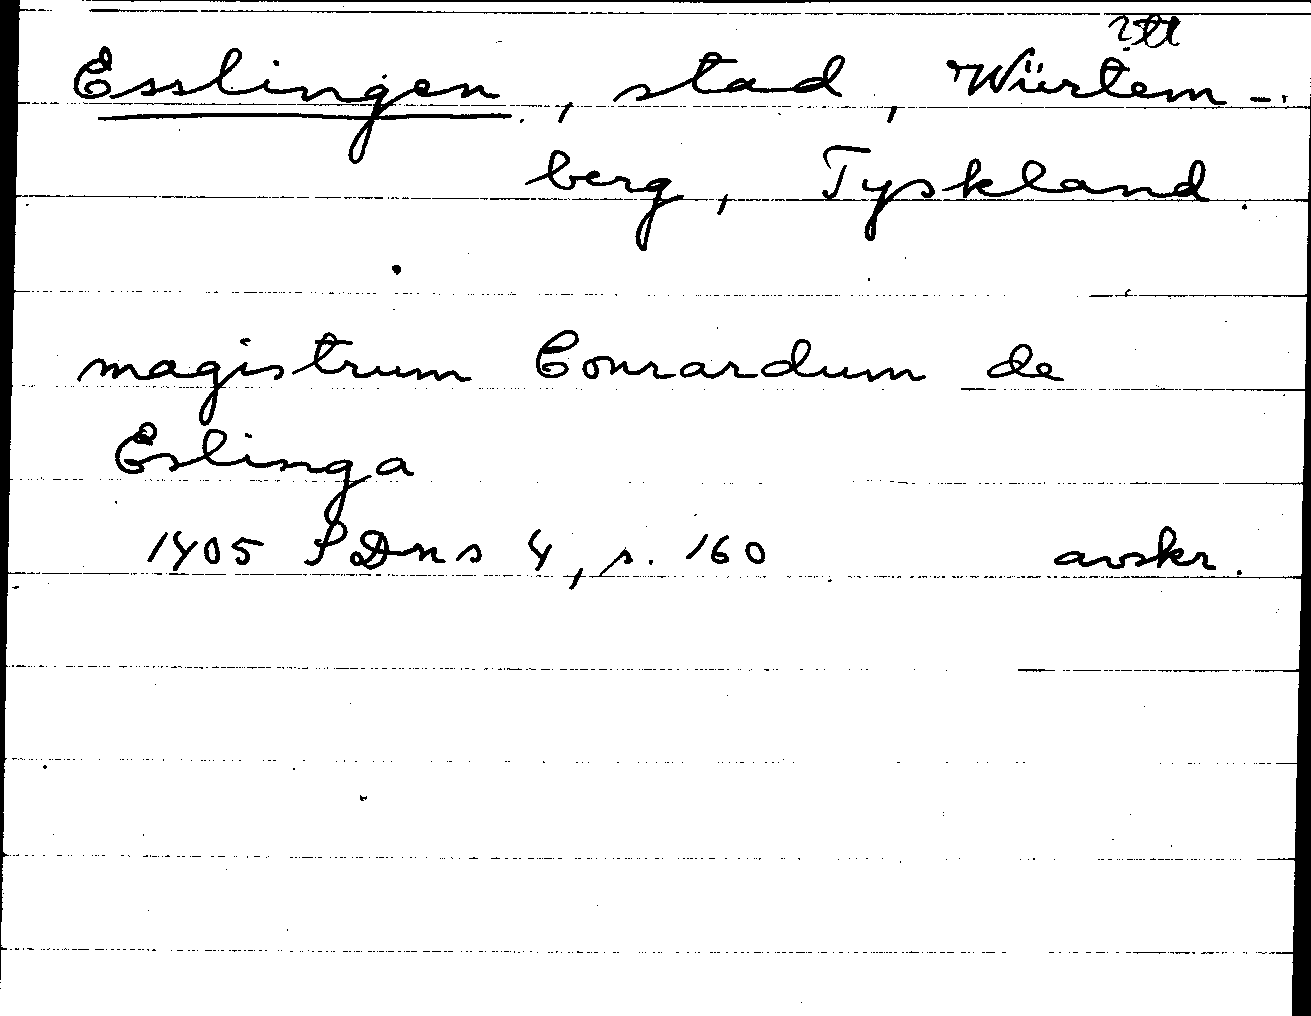 ?tt
Esslingen, stad, Würtem-
berg, Tyskland.
magistrum Conrardum de
Eslinga
1405 SDns 4, s. 160 avskr.